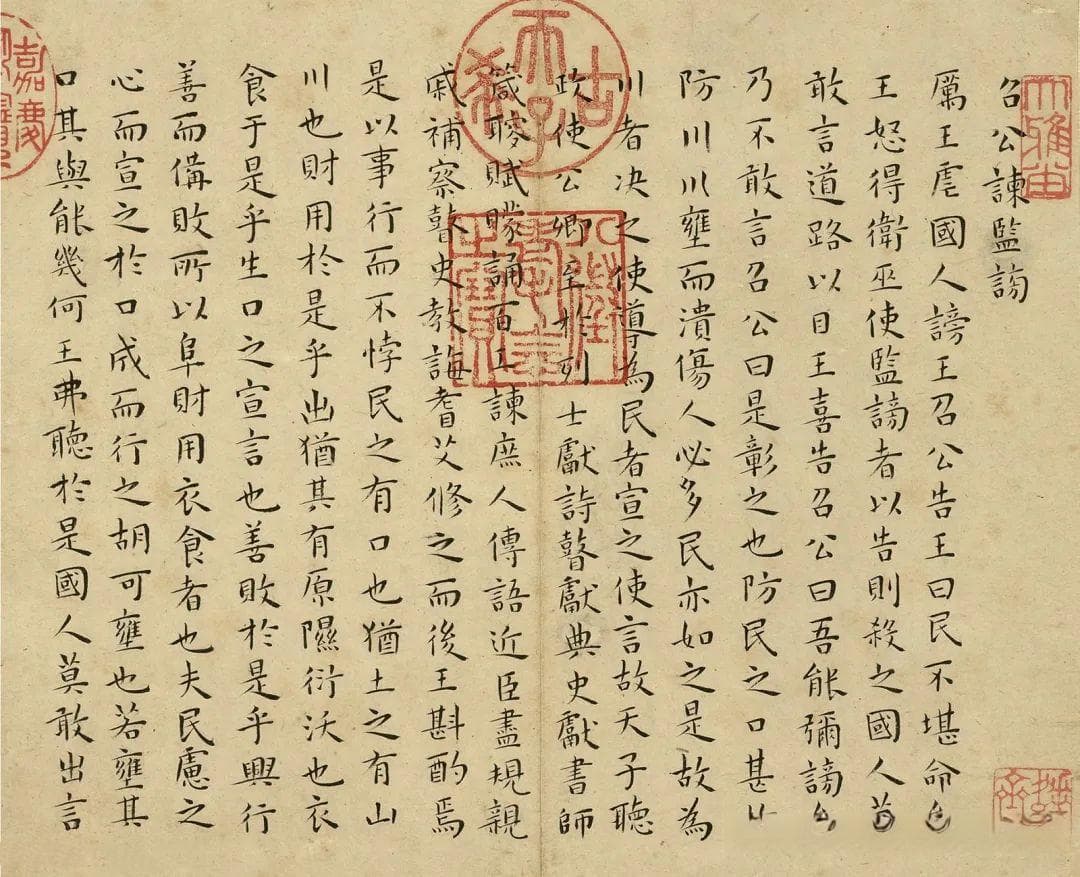 召公諫監謗
厲王虐國人謗王召公告王曰民不堪命
王怒得衛巫使監謗者以告則殺之國人
敢言道路以目王喜告召公曰吾能彌謗
乃不敢言召公曰是彰之也防民之口甚
防川川壅而潰傷人必多民亦如之是故為
川者决之使導為民者宣之使言故天子聽
政使公卿至於列士獻詩瞽獻典史獻書師
箴瞍賦矇誦百工諫庶人傳語近臣盡規親
戚補察瞽史教誨耆艾修之而後王斟酌焉
是以事行而不悖民之有口也猶土之有山
川也財用於是乎出猶其有原隰衍沃也衣
食于是乎生口之宣言也善敗於是乎興行
善而備敗所以阜財用衣食者也夫民慮之
心而宣之於口成而行之胡可壅也若壅其
口其與能幾何王弗聽於是國人莫敢出言
古希天子
八徵耄念之寶
嘉慶